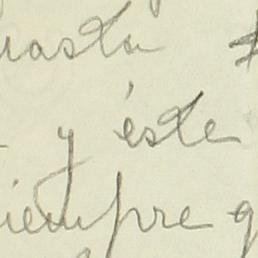 hasta
y éste
siempre q